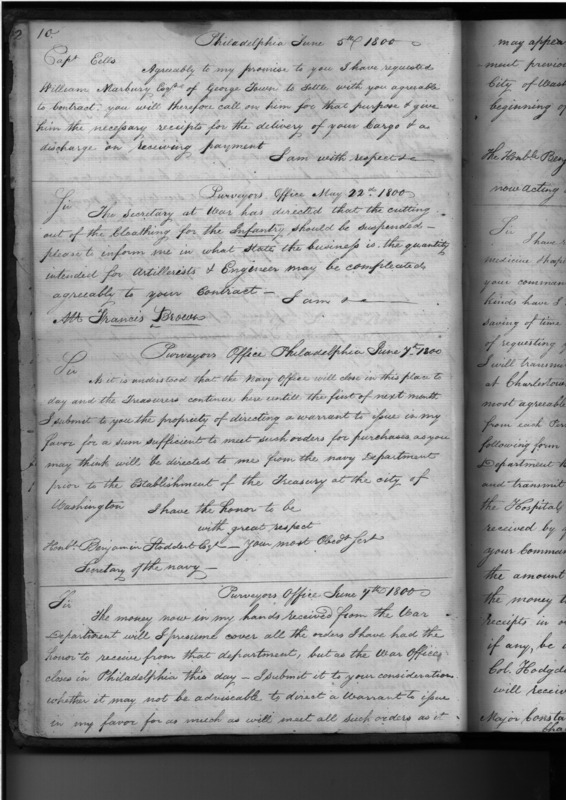 10.
Philadelphia June 5th 1800
Capt Eells
Agreably to my promise to you I have requested
William Marbury Esqr of George Town to settle with you agreable
to Contract. you will therefore call on him for that purpose & give
him the necessary receipts for the delivery of your Cargo & a
discharge on receiving payment
I am with respect &c
Purveyors Office May 22nd 1800
Sir
The Secretary at War has directed that the cutting
out of the Cloathing for the Infantry should be suspended —
please to inform me in what State the business is. the quantity
intended for Artillerists & Engineer may be compleated
agreeably to your Contract — I am &c
Mr Francis Brown
Purveyors Office Philadelphia June 7th 1800
Sir
As it is understood that the Navy Office will close in this place to
day and the Treasurers continue here untill the first of next month
I submit to you the propriety of directing a warrant to issue in my
favor for a sum sufficient to meet such orders for purchases as you
may think will be directed to me from the Navy Department
prior to the Establishment of the Treasury at the city of
Washington I have the honor to be
with great respect
Honble Benjamin Stoddert Esqr — Your most Obedt Servt
Secretary of the navy —
Purveyors Office June 7th 1800
Sir
The money now in my hands received from the War
Department will I presume cover all the orders I have had the
honor to receive from that department, but as the War Office
closes in Philadelphia this day — I submit it to your consideration
whether it may not be adviseable to direct a Warrant to issue
in my favor for as much as will meet all such orders as it
may appea
ment previou
City of Wash
beginning of
the Honble Benj
now acting
Sir
I have
medicine
your comman
kinds have I
saving of time
of requesting
I will transm
at Charlestow
most agreeable
from each
following form
Department
and transmit
the Hospital
received by
your Comman
the amount
the money
receipts in
if any, be
Col. Hodgdo
will receiv
Major Consta